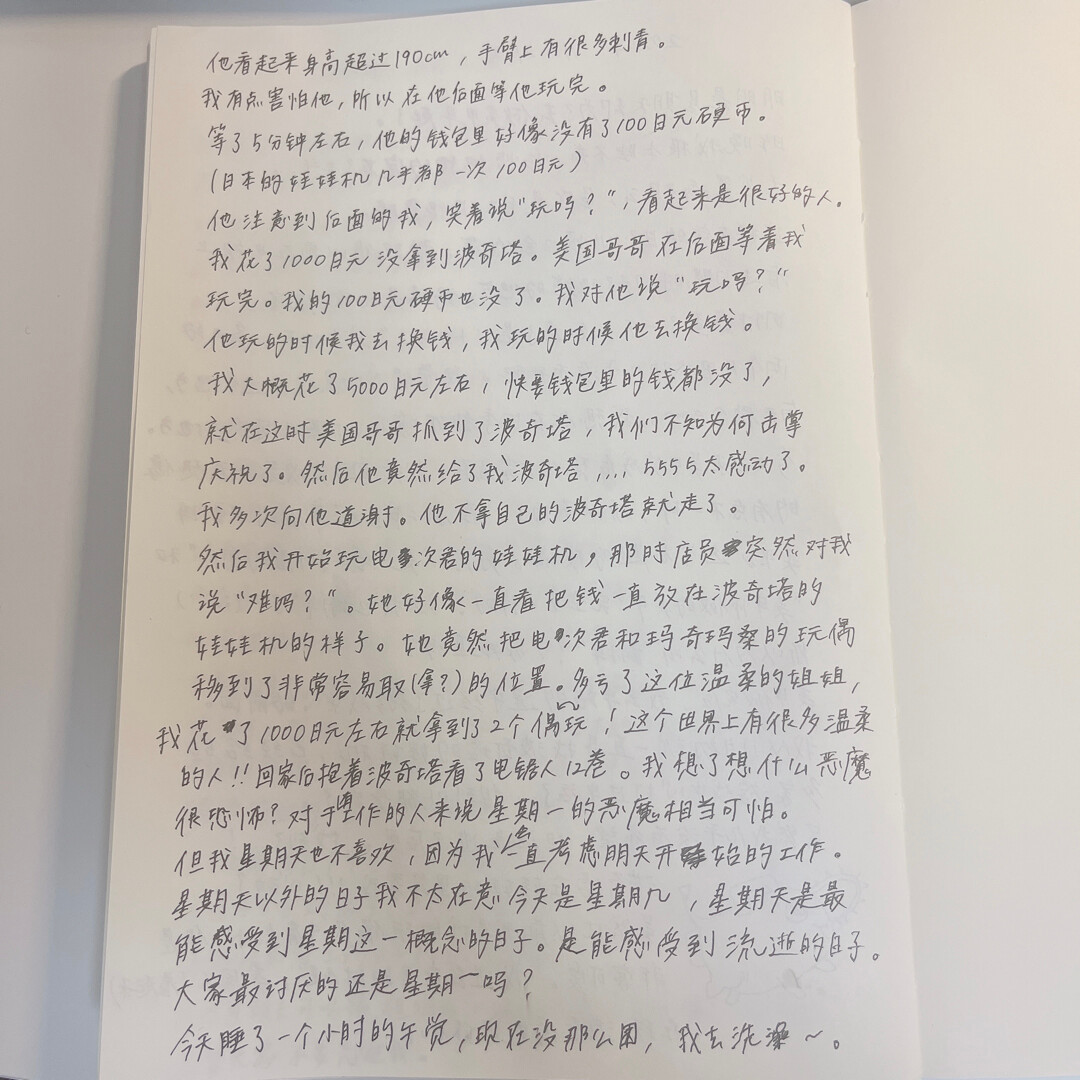 他看起来身高超过190cm，手臂上有很多刺青。
我有点害怕他，所以在他后面等他玩完。
等了5分钟左右，他的钱包里好像没有了100日元硬币。
(日本的娃娃机几乎都一次100日元)
他注意到后面的我，笑着说"玩吗？"，看起来是很好的人。
我花了1000日元没拿到波奇塔。美国哥哥在后面等着我
玩完。我的100日元硬币也没了。我对他说"玩吗？"
他玩的时候我去换钱，我玩的时候他去换钱。
我大概花了5000日元左右，快要钱包里的钱都没了，
就在这时美国哥哥抓到了波奇塔，我们不知为何击掌
庆祝了。然后他竟然给了我波奇塔....5555太感动了。
我多次向他道谢。他不拿自己的波奇塔就走了。
然后我开始玩电次君的娃娃机，那时店员突然对我
说"难吗？"。她好像一直看把钱一直放在波奇塔的
娃娃机的样子。她竟然把电次君和玛奇玛桑的玩偶
移到了非常容易取(拿？)的位置。多亏了这位温柔的姐姐，
我花了1000日元左右就拿到了2个偶玩！这个世界上有很多温柔
的人!!回家后抱着波奇塔看了电锯人12卷。我想了想什么恶魔
很恐怖？对于工作的人来说星期一的恶魔相当可怕。
但我星期天也不喜欢，因为我会一直考虑明天开始的工作。
星期天以外的日子我不太在意今天是星期几，星期天是最
能感受到星期这一概念的日子。是能感受到流逝的日子。
大家最讨厌的还是星期一吗？
今天睡了一个小时的午觉，现在没那么困，我去洗澡~。